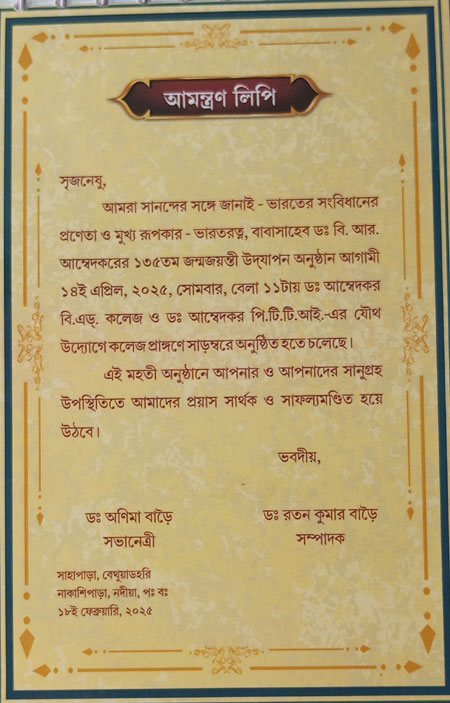 আমন্ত্রণ লিপি
সৃজনেষু,
আমরা সানন্দের সঙ্গে জানাই - ভারতের সংবিধানের
প্রণেতা ও মুখ্য রূপকার - ভারতরত্ন, বাবাসাহেব ডঃ বি. আর.
আম্বেদকরের ১৩৫তম জন্মজয়ন্তী উদ্‌যাপন অনুষ্ঠান আগামী
১৪ই এপ্রিল, ২০২৫, সোমবার, বেলা ১১টায় ডঃ আম্বেদকর
বি.এড্‌. কলেজ ও ডঃ আম্বেদকর পি.টি.টি.আই.-এর যৌথ
উদ্যোগে কলেজ প্রাঙ্গণে সাড়ম্বরে অনুষ্ঠিত হতে চলেছে।
এই মহতী অনুষ্ঠানে আপনার ও আপনাদের সানুগ্রহ
উপস্থিতিতে আমাদের প্রয়াস সার্থক ও সাফল্যমণ্ডিত হয়ে
উঠবে।
ভবদীয়,
ডঃ অণিমা বাড়ৈ
সভানেত্রী
ডঃ রতন কুমার বাড়ৈ
সম্পাদক
সাহাপাড়া, বেথুয়াডহরি
নাকাশিপাড়া, নদীয়া, পঃ বঃ
১৮ই ফেব্রুয়ারি, ২০২৫